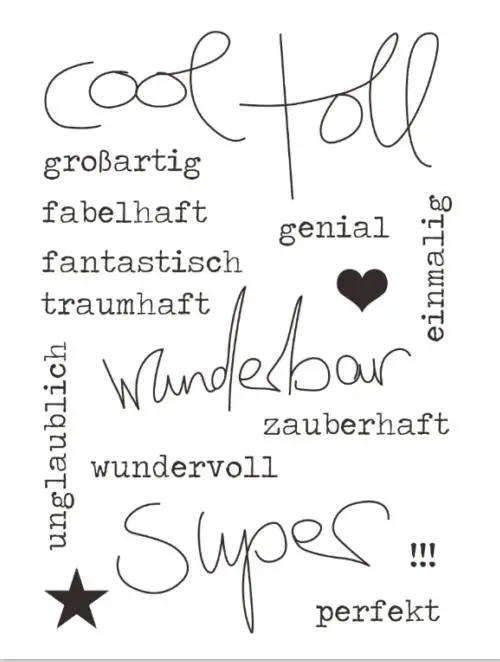 cool toll
großartig
fabelhaft
genial
einmalig
fantastisch
traumhaft
wunderbar
unglaublich
zauberhaft
wundervoll
Super
!!!
perfekt